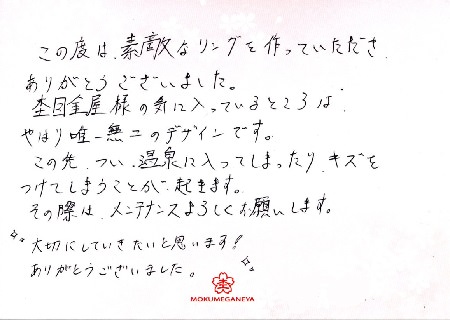 この度は、素敵なリングを作っていただき、
ありがとうございました。
杢目金屋様の気に入っているところは、
やはり唯一無二のデザインです。
この先、つい、温泉に入ってしまったり、キズを
つけてしまうことが起きます。
その際は、メンテナンスよろしくお願いします。
大切にしていきたいと思います!
ありがとうございました。
MOKUMEGANEYA